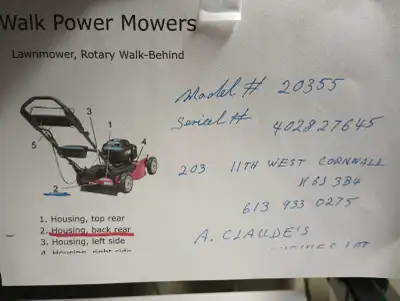 Walk Power Mowers
Lawnmower, Rotary Walk-Behind
3
1
4
5
2
1. Housing, top rear
2. Housing, back rear
3. Housing, left side
4. Housing, right side
Model # 20355
Serial # 402827645
203 11TH WEST CORNWALL
K6J 3B4
613 933 0275
A. CLAUDE'S